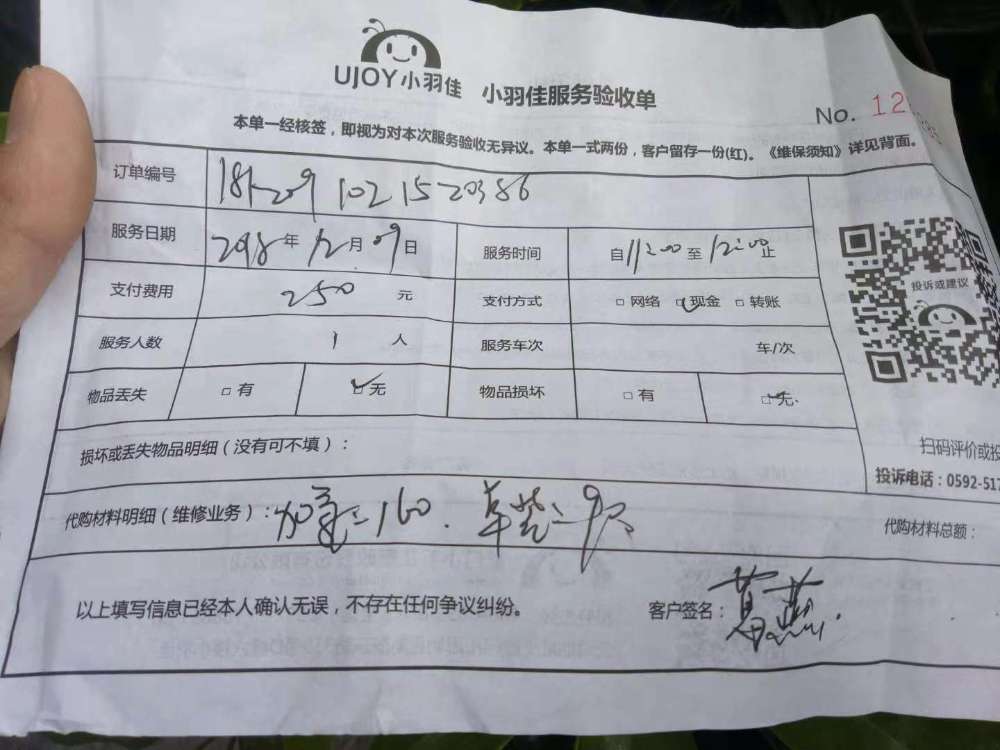 UJOY小羽佳 小羽佳服务验收单
No. 12
本单一经核签，即视为对本次服务验收无异议。本单一式两份，客户留存一份(红)。《维保须知》详见背面。
订单编号 181209 1021520386
服务日期 2018年12月09日 服务时间 自11:00至12:00止
支付费用 250 元 支付方式 □网络 ☑现金 □转账
服务人数 1 人 服务车次 车/次
物品丢失 □有 ☑无 物品损坏 □有 ☑无
投诉或建议
损坏或丢失物品明细（没有可不填）：
扫码评价或投
投诉电话：0592-517
代购材料明细（维修业务）：加氟=160.
代购材料总额：
以上填写信息已经本人确认无误，不存在任何争议纠纷。 客户签名：